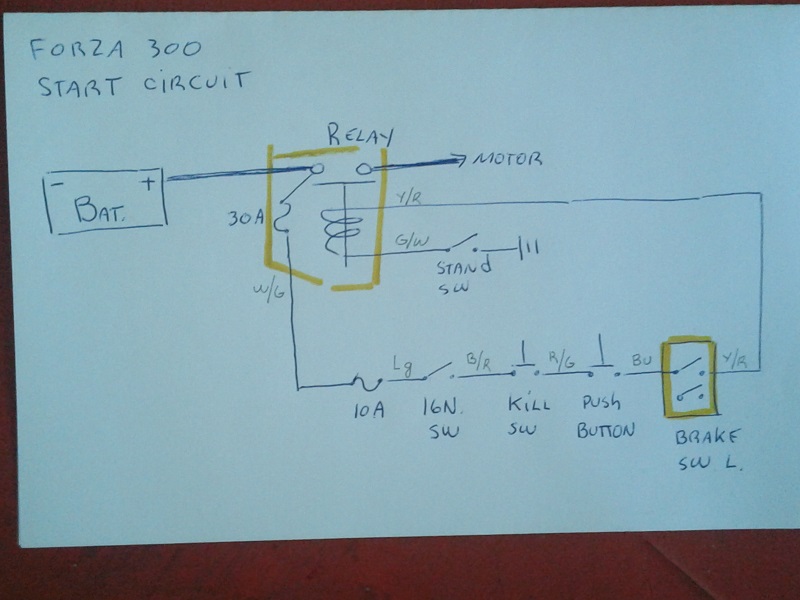 FORZA 300
START CIRCUIT
RELAY
- +
BAT.
MOTOR
30A
Y/R
G/W
STAND
SW
W/G
Lg
B/R
R/G
BU
Y/R
10A
IGN.
SW
KILL
SW
PUSH
BUTTON
BRAKE
SW L.